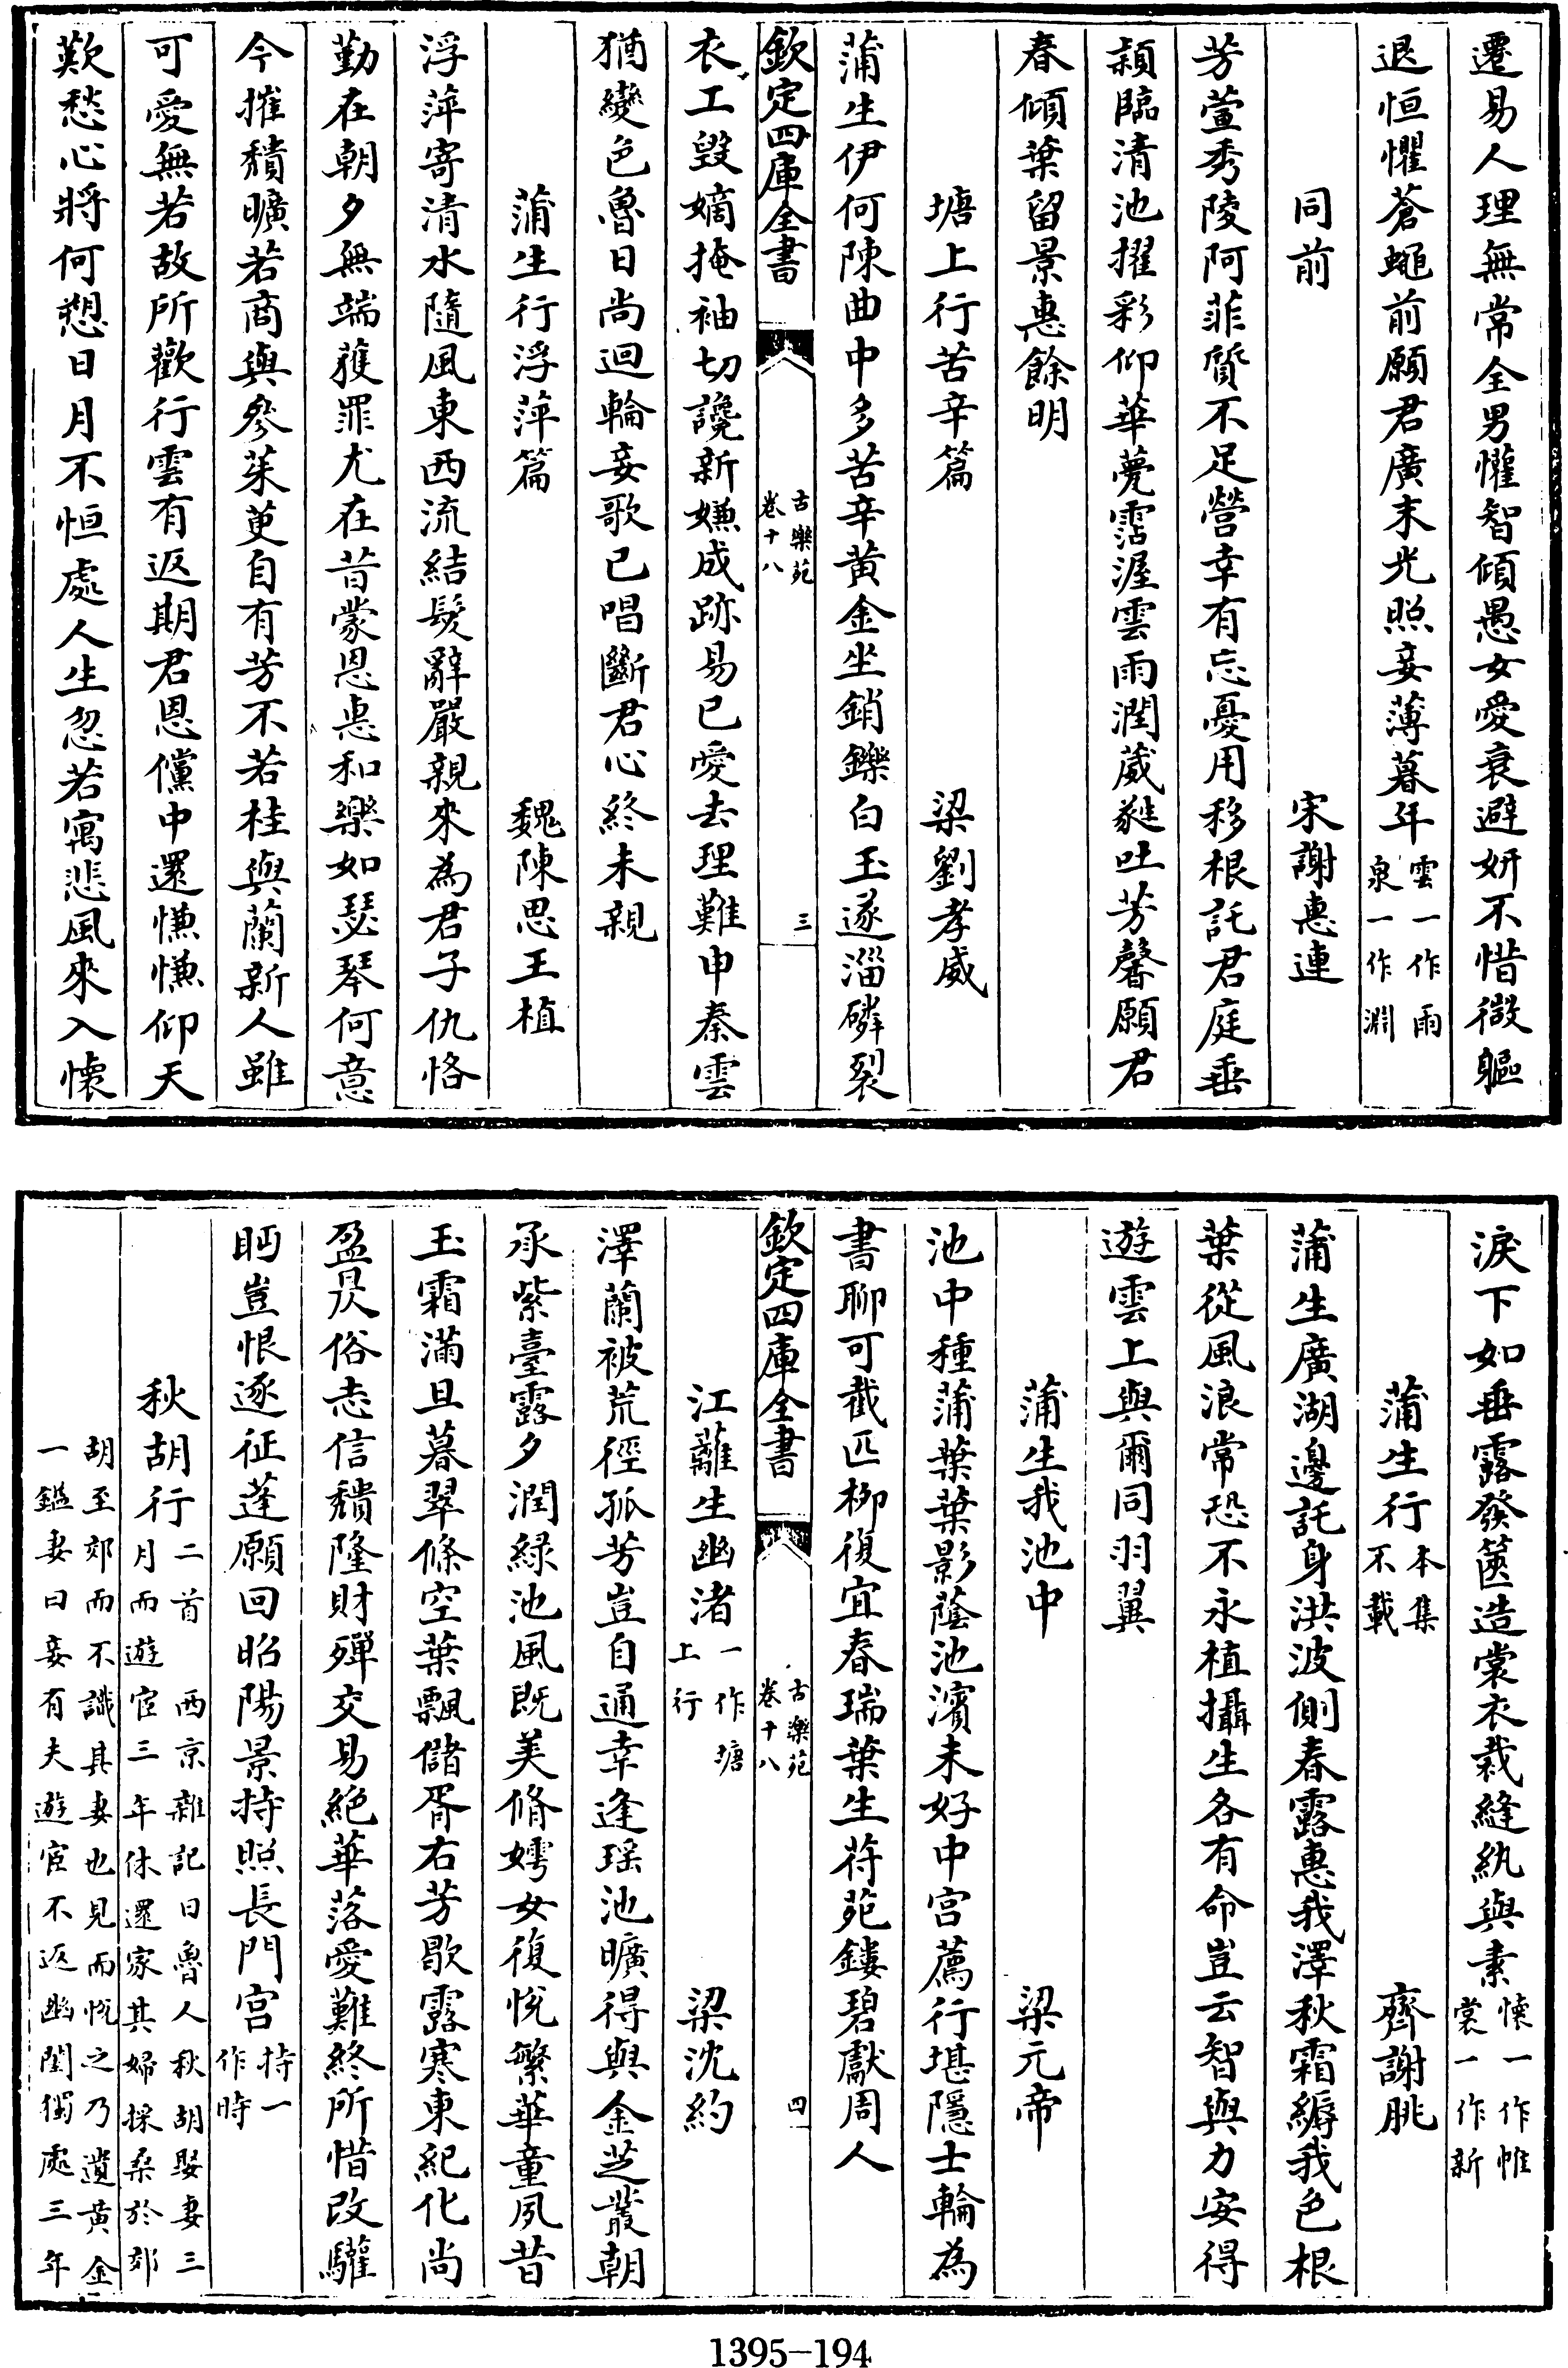 遷易人理無常全男懽智傾愚女愛衰避妍不惜微軀
退恒懼蒼蠅前願君廣末光照妾薄暮年雲一作雨泉一作淵
同前　宋謝惠連
芳萱秀陵阿菲質不足營幸有忘憂用移根託君庭垂
穎臨清池擢彩仰華甍霑渥雲雨潤葳蕤吐芳馨願君
春傾葉留景惠餘明
塘上行苦辛篇　梁劉孝威
蒲生伊何陳曲中多苦辛黄金坐銷鑠白玉遂淄磷裂
欽定四庫全書　古樂苑卷十八　三
衣工毀嫡掩袖切讒新嫌成跡易已愛去理難申秦雲
猶變色魯日尚迴輪妾歌已唱斷君心終未親
蒲生行浮萍篇　魏陳思王植
浮萍寄清水隨風東西流結髮辭嚴親來為君子仇恪
勤在朝夕無端獲罪尤在昔蒙恩惠和樂如瑟琴何意
今摧頽曠若商與參茱萸自有芳不若桂與蘭新人雖
可愛無若故所歡行雲有返期君恩儻中還慊慊仰天
歎愁心將何愬日月不恒處人生忽若寓悲風來入懷
淚下如垂露發篋造裳衣裁縫紈與素懷一作帷裳一作新
蒲生行本集不載　齊謝朓
蒲生廣湖邊託身洪波側春露惠我澤秋霜縟我色根
葉從風浪常恐不永植攝生各有命豈云智與力安得
遊雲上與爾同羽翼
蒲生我池中　梁元帝
池中種蒲葉葉影蔭池濱未好中宫薦行堪隱士輪為
書聊可截匹柳復宜春瑞葉生苻苑鏤碧獻周人
欽定四庫全書　古樂苑卷十八　四
江蘺生幽渚一作塘上行　梁沈約
澤蘭被荒徑孤芳豈自通幸逢瑶池曠得與金芝叢朝
承紫臺露夕潤緑池風既美脩嫮女復悅繁華童夙昔
玉霜滿旦暮翠條空葉飄儲胥右芳歇露寒東紀化尚
盈昃俗志信頽隆財殫交易絶華落愛難終所惜改驩
眄豈恨逐征蓬願回昭陽景持照長門宫持一作時
秋胡行二首　西京雜記曰魯人秋胡娶妻三月而遊宦三年休還家其婦採桑於郊
胡至郊而不識其妻也見而悅之乃遺黄金一鎰妻曰妾有夫遊宦不返幽閨獨處三年
1395-194